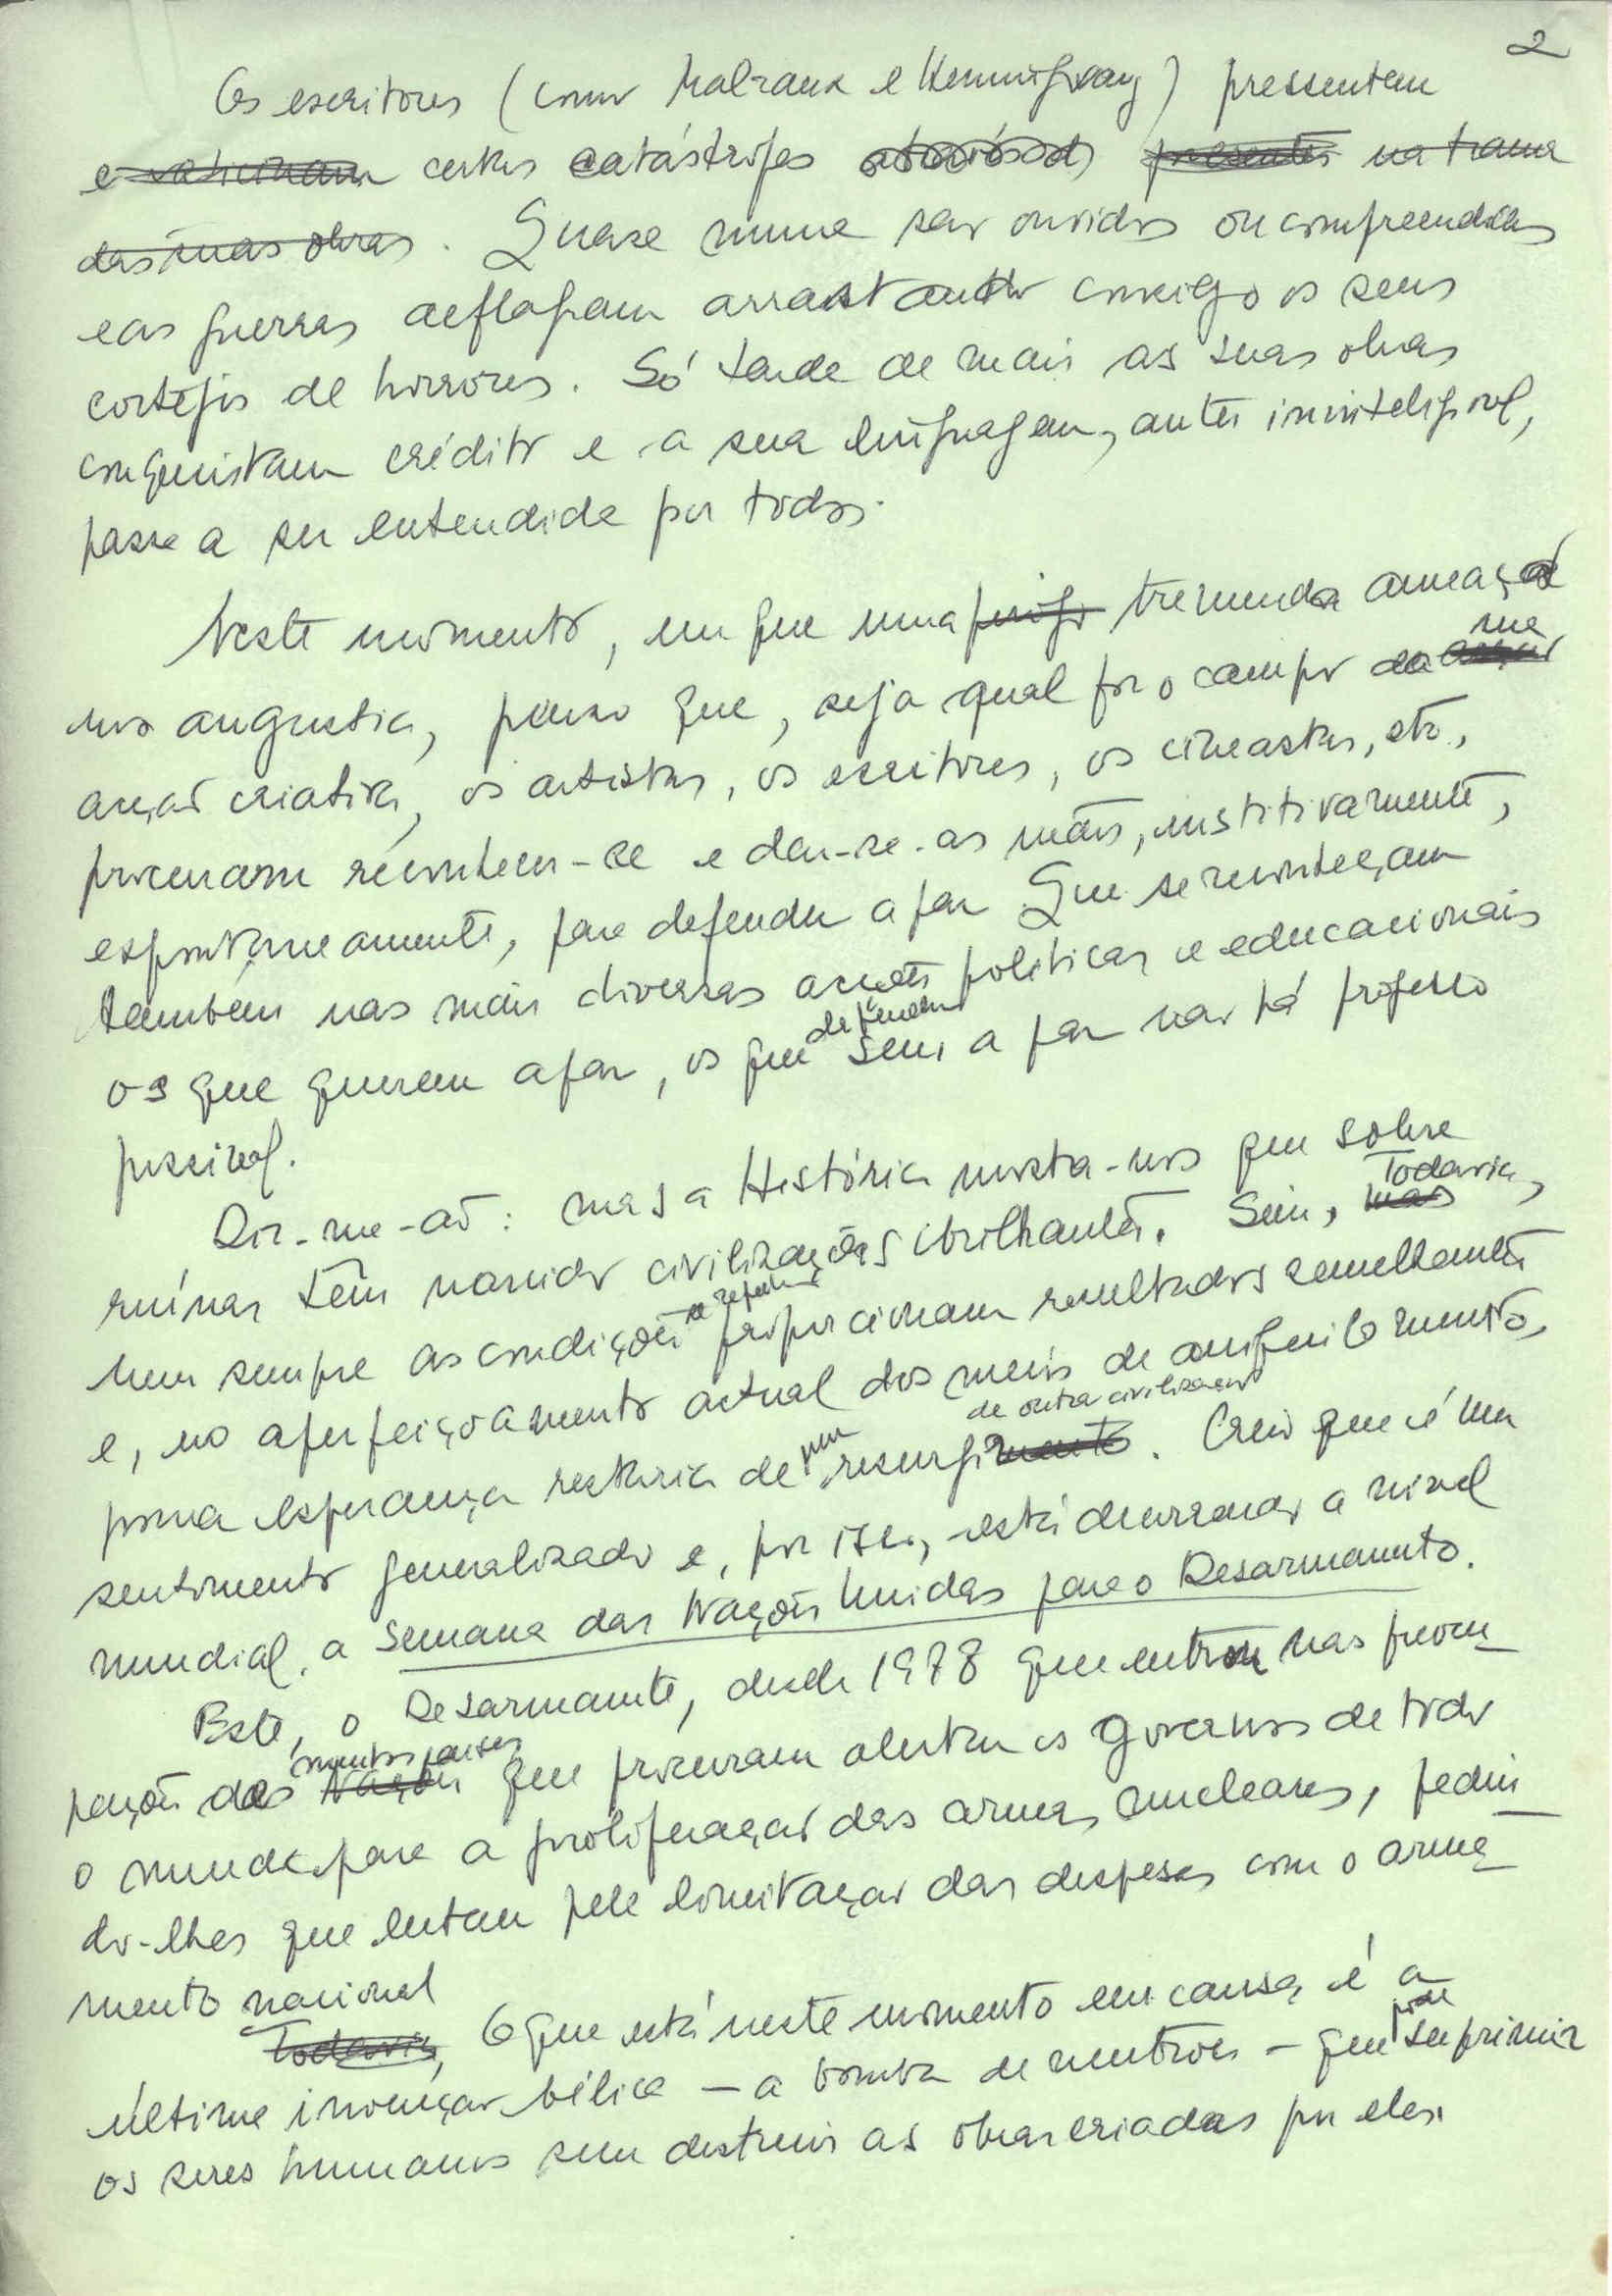 2
Os escritores (como Malraux e Hemingway) pressentem
e vaticinam certas catástrofes através de presentes na trama
das suas obras. Quase nunca são ouvidos ou compreendidos
e as guerras deflagram arrastando consigo os seus
cortejos de horrores. Só tarde de mais as suas obras
conquistam crédito e a sua linguagem, antes ininteligível,
passa a ser entendida por todos.
Neste momento, em que uma perigo tremenda ameaça
nos angustia, penso que, seja qual for o campo da sua
acção criativa, os artistas, os escritores, os cineastas, etc.,
procuram reconhecer-se e dar-se as mãos, institivamente,
espontaneamente, para defender a paz. Que se reconheçam
também nas mais diversas acções políticas e educacionais
os que querem a paz, os que defendem sem a paz não há progresso
possível.
Dir-me-ão: mas a História mostra-nos que sobre
ruínas têm nascido civilizações brilhantes. Sim, mas Todavia,
nem sempre as condições se repetem proporcionam resultados semelhantes
e, no aperfeiçoamento actual dos meios de aniquilamento,
pouca esperança restaria de um resurgimento de outra civilização. Creio que é um
sentimento generalizado e, por isso, está decorrendo a nível
mundial, a Semana das Nações Unidas para o Desarmamento.
Este, o Desarmamento, desde 1978 que entrou nas preocu
pações dos Nações muitos países que procuram alertar os Governos de todo
o mundo para a proliferação das armas nucleares, pedin
do-lhes que lutem pela limitação das despesas com o arma
mento nacional
Todavia, O que está neste momento em causa, é a
última invenção bélica — a bomba de neutrões — que pode suprimir
os seres humanos sem destruir as obras criadas por eles.